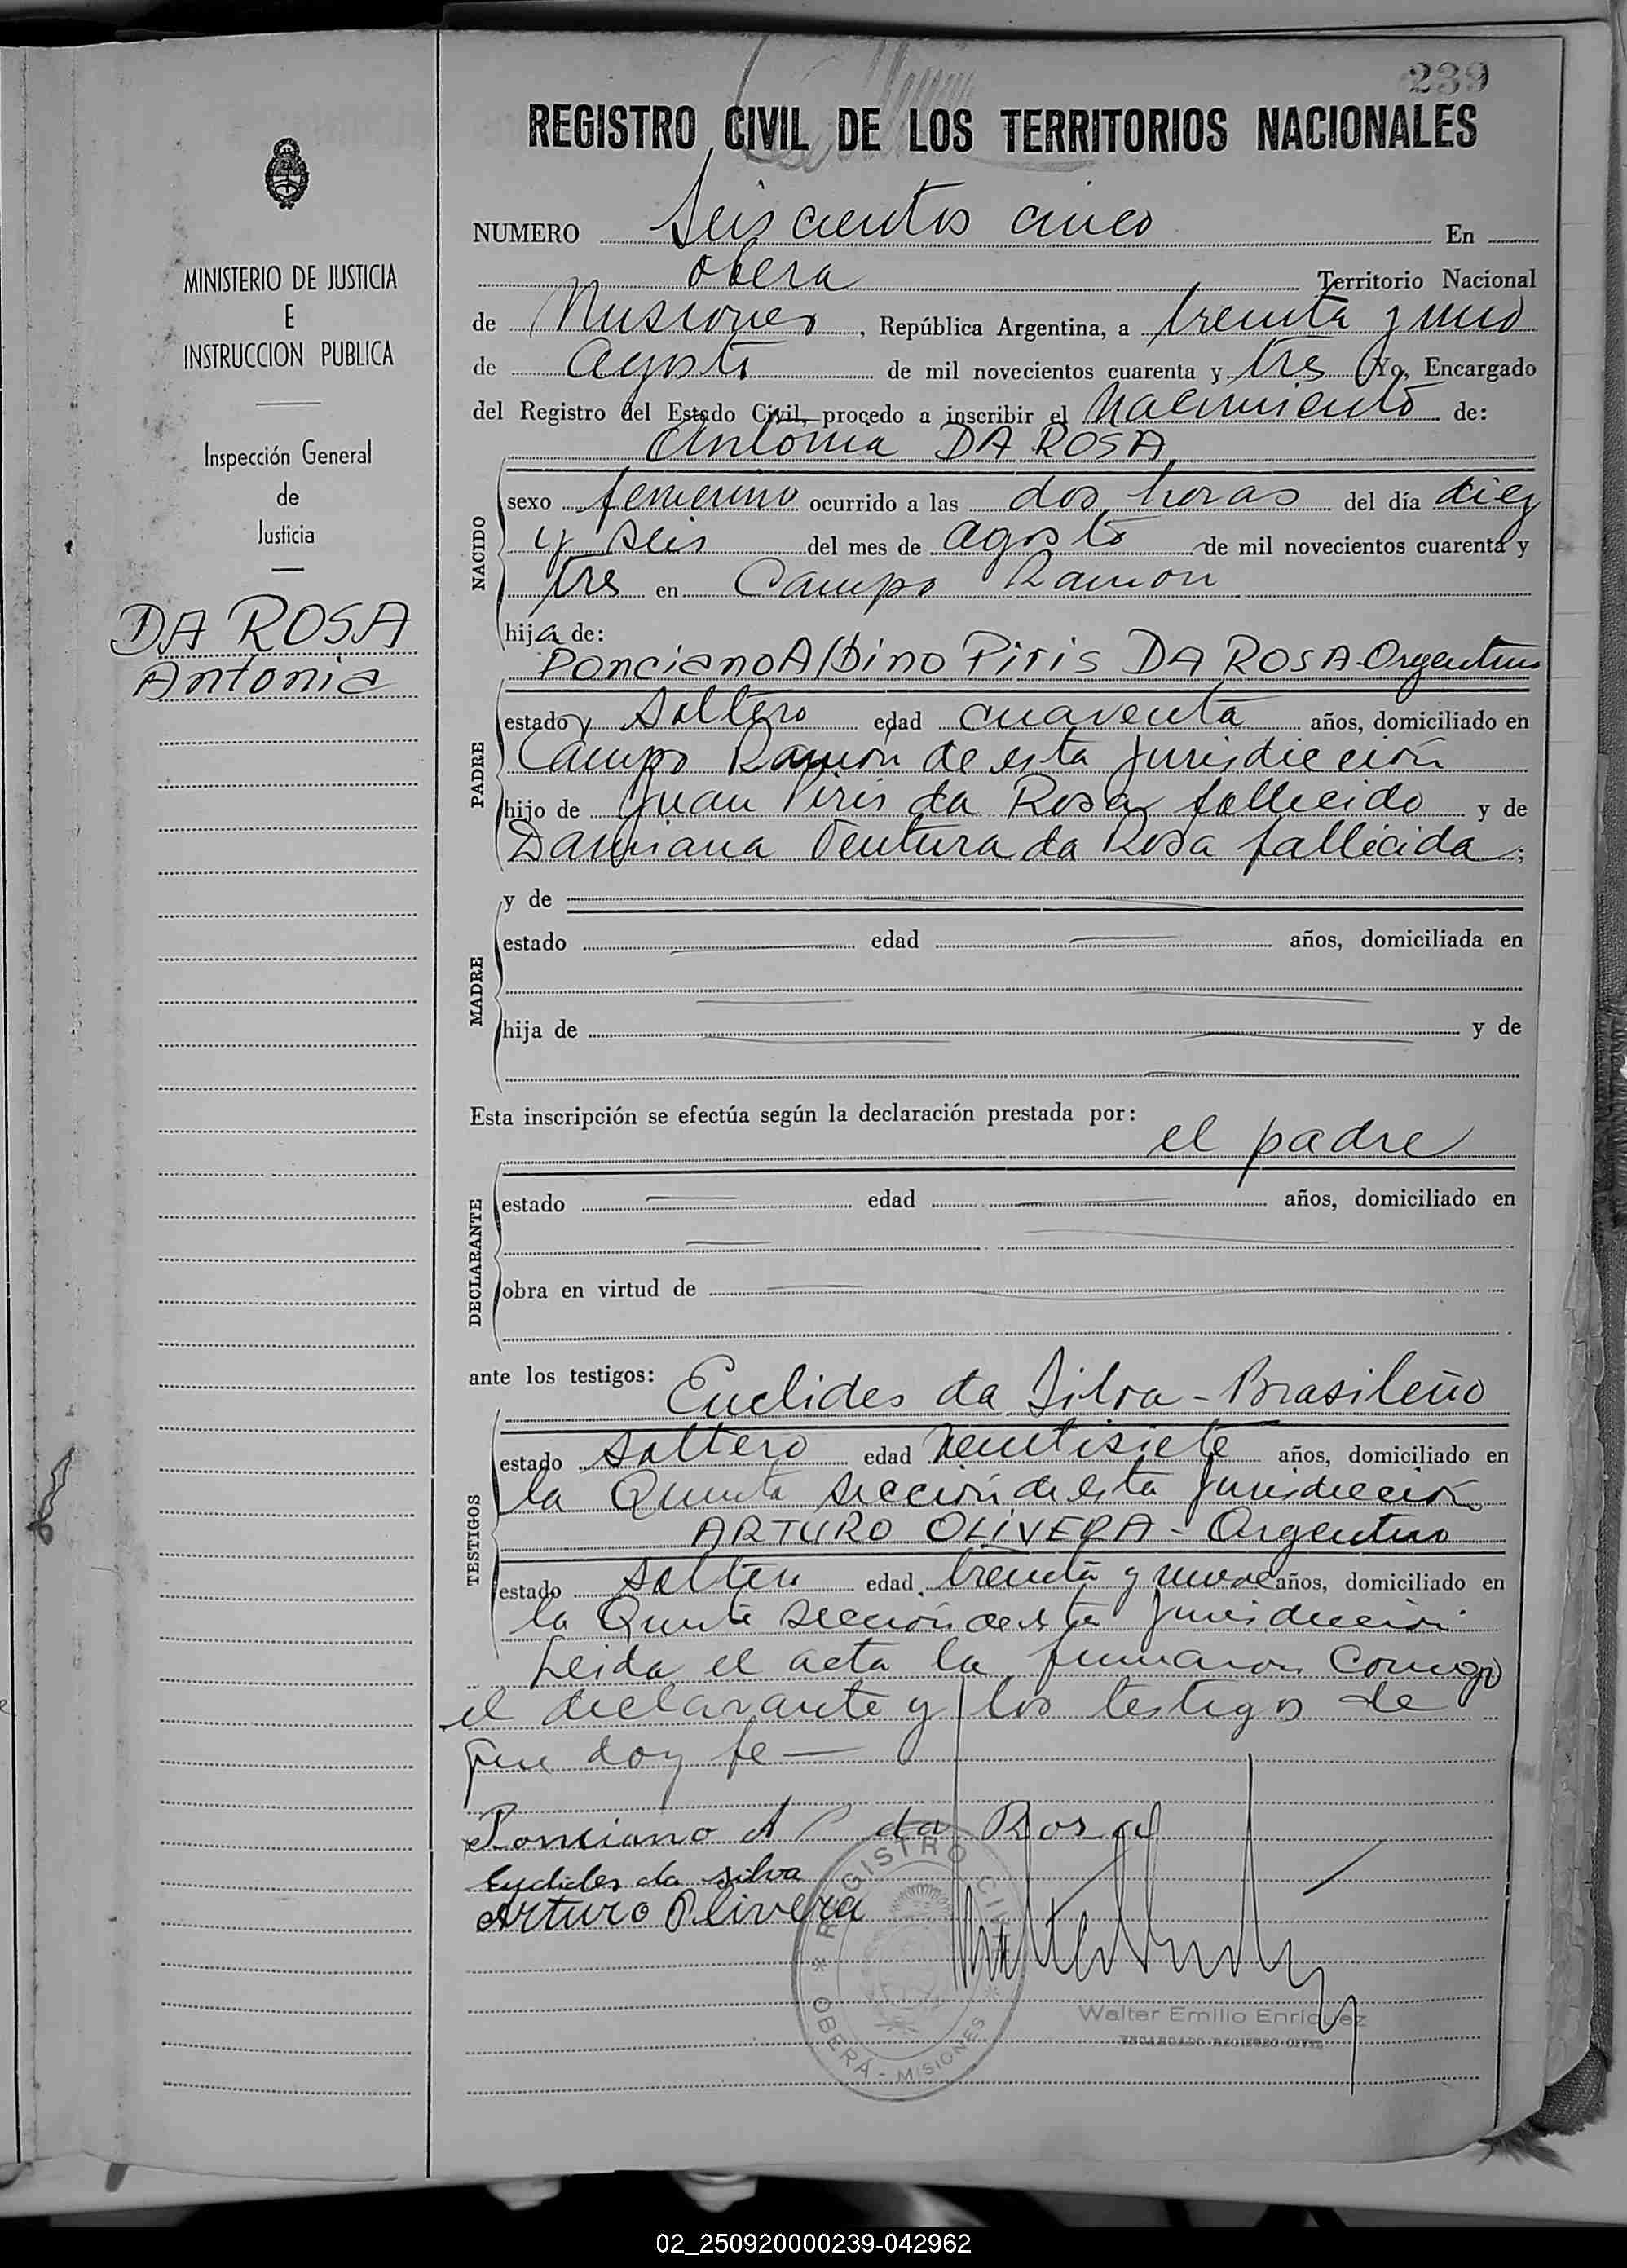 239
REGISTRO CIVIL DE LOS TERRITORIOS NACIONALES
NUMERO Seiscientos cinco En
Obera Territorio Nacional
de Misiones, República Argentina, a treinta y uno
de Agosto de mil novecientos cuarenta y tres Yo, Encargado
del Registro del Estado Civil, procedo a inscribir el Nacimiento de:
Antonia DA ROSA
NACIDO
sexo femenino ocurrido a las dos horas del día diez
y seis del mes de agosto de mil novecientos cuarenta y
tres en Campo Ramon
hija de:
Ponciano Albino Piris DA ROSA Argentino
PADRE
estado soltero edad cuarenta años, domiciliado en
Campo Ramon de esta Jurisdicción
hijo de Juan Piris da Rosa fallecido y de
Damiana Ventura da Rosa fallecida;
MADRE
y de
estado edad años, domiciliada en
hija de y de
Esta inscripción se efectúa según la declaración prestada por:
el padre
DECLARANTE
estado edad años, domiciliado en
obra en virtud de
ante los testigos: Euclides da Silva - Brasileño
TESTIGOS
estado soltero edad veintisiete años, domiciliado en
la Quinta sección de esta Jurisdicción
ARTURO OLIVERA - Argentino
estado soltero edad treinta y nueve años, domiciliado en
la Quinta sección de esta Jurisdicción
Leida el acta la firmaron Conmigo
el declarante y los testigos de
que doy fe
Ponciano A P da Rosa
Euclides da silva
Arturo Olivera
REGISTRO CIVIL
OBERÁ - MISIONES
Walter Emilio Enriquez
ENCARGADO REGISTRO CIVIL
MINISTERIO DE JUSTICIA
E
INSTRUCCION PUBLICA
Inspección General
de
Justicia
DA ROSA
Antonia
02_250920000239-042962